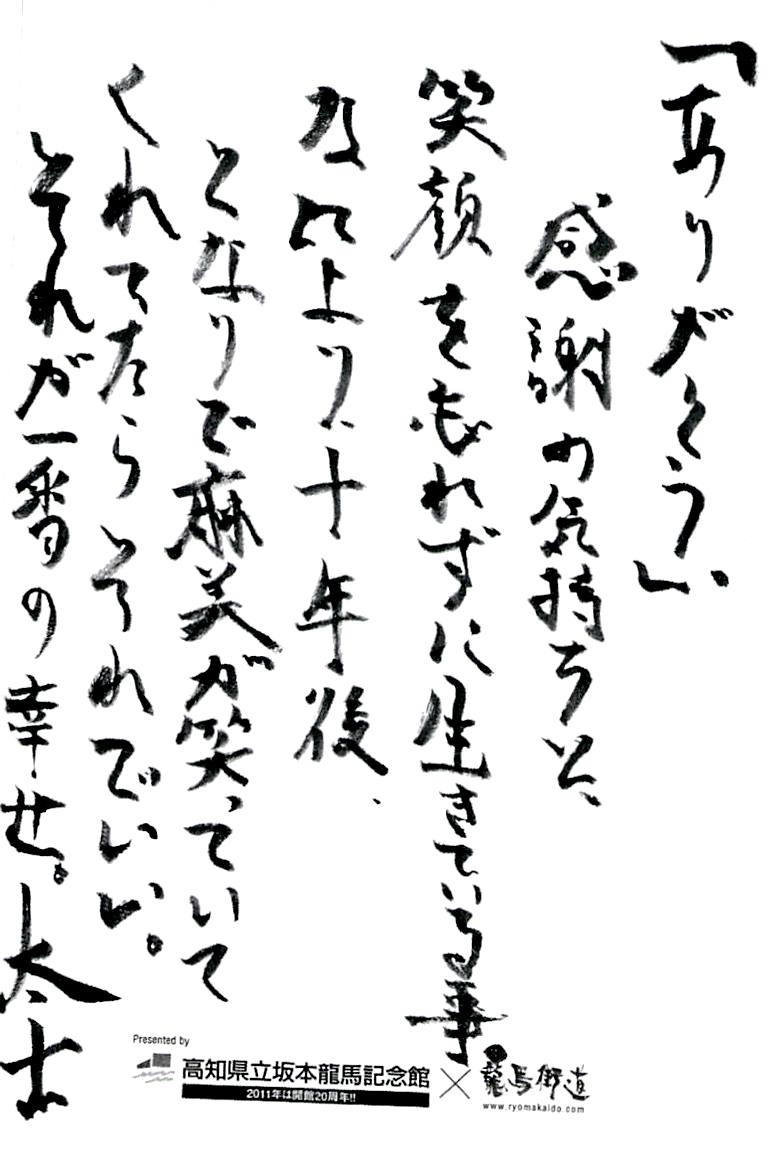 「ありがとう」
感謝の気持ちと、
笑顔を忘れずに生きている事
なにより、十年後、
となりで麻美が笑っていて
くれてたらそれでいい。
それが一番の幸せ。太士
Presented by
高知県立坂本龍馬記念館
2011年は開館20周年!!
×
龍馬街道
www.ryomakaido.com